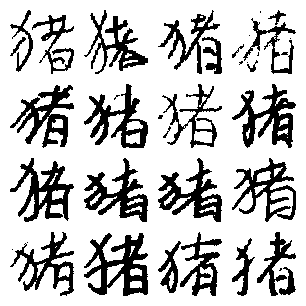 猪猪猪猪
猪猪猪猪
猪猪猪猪
猪猪猪猪